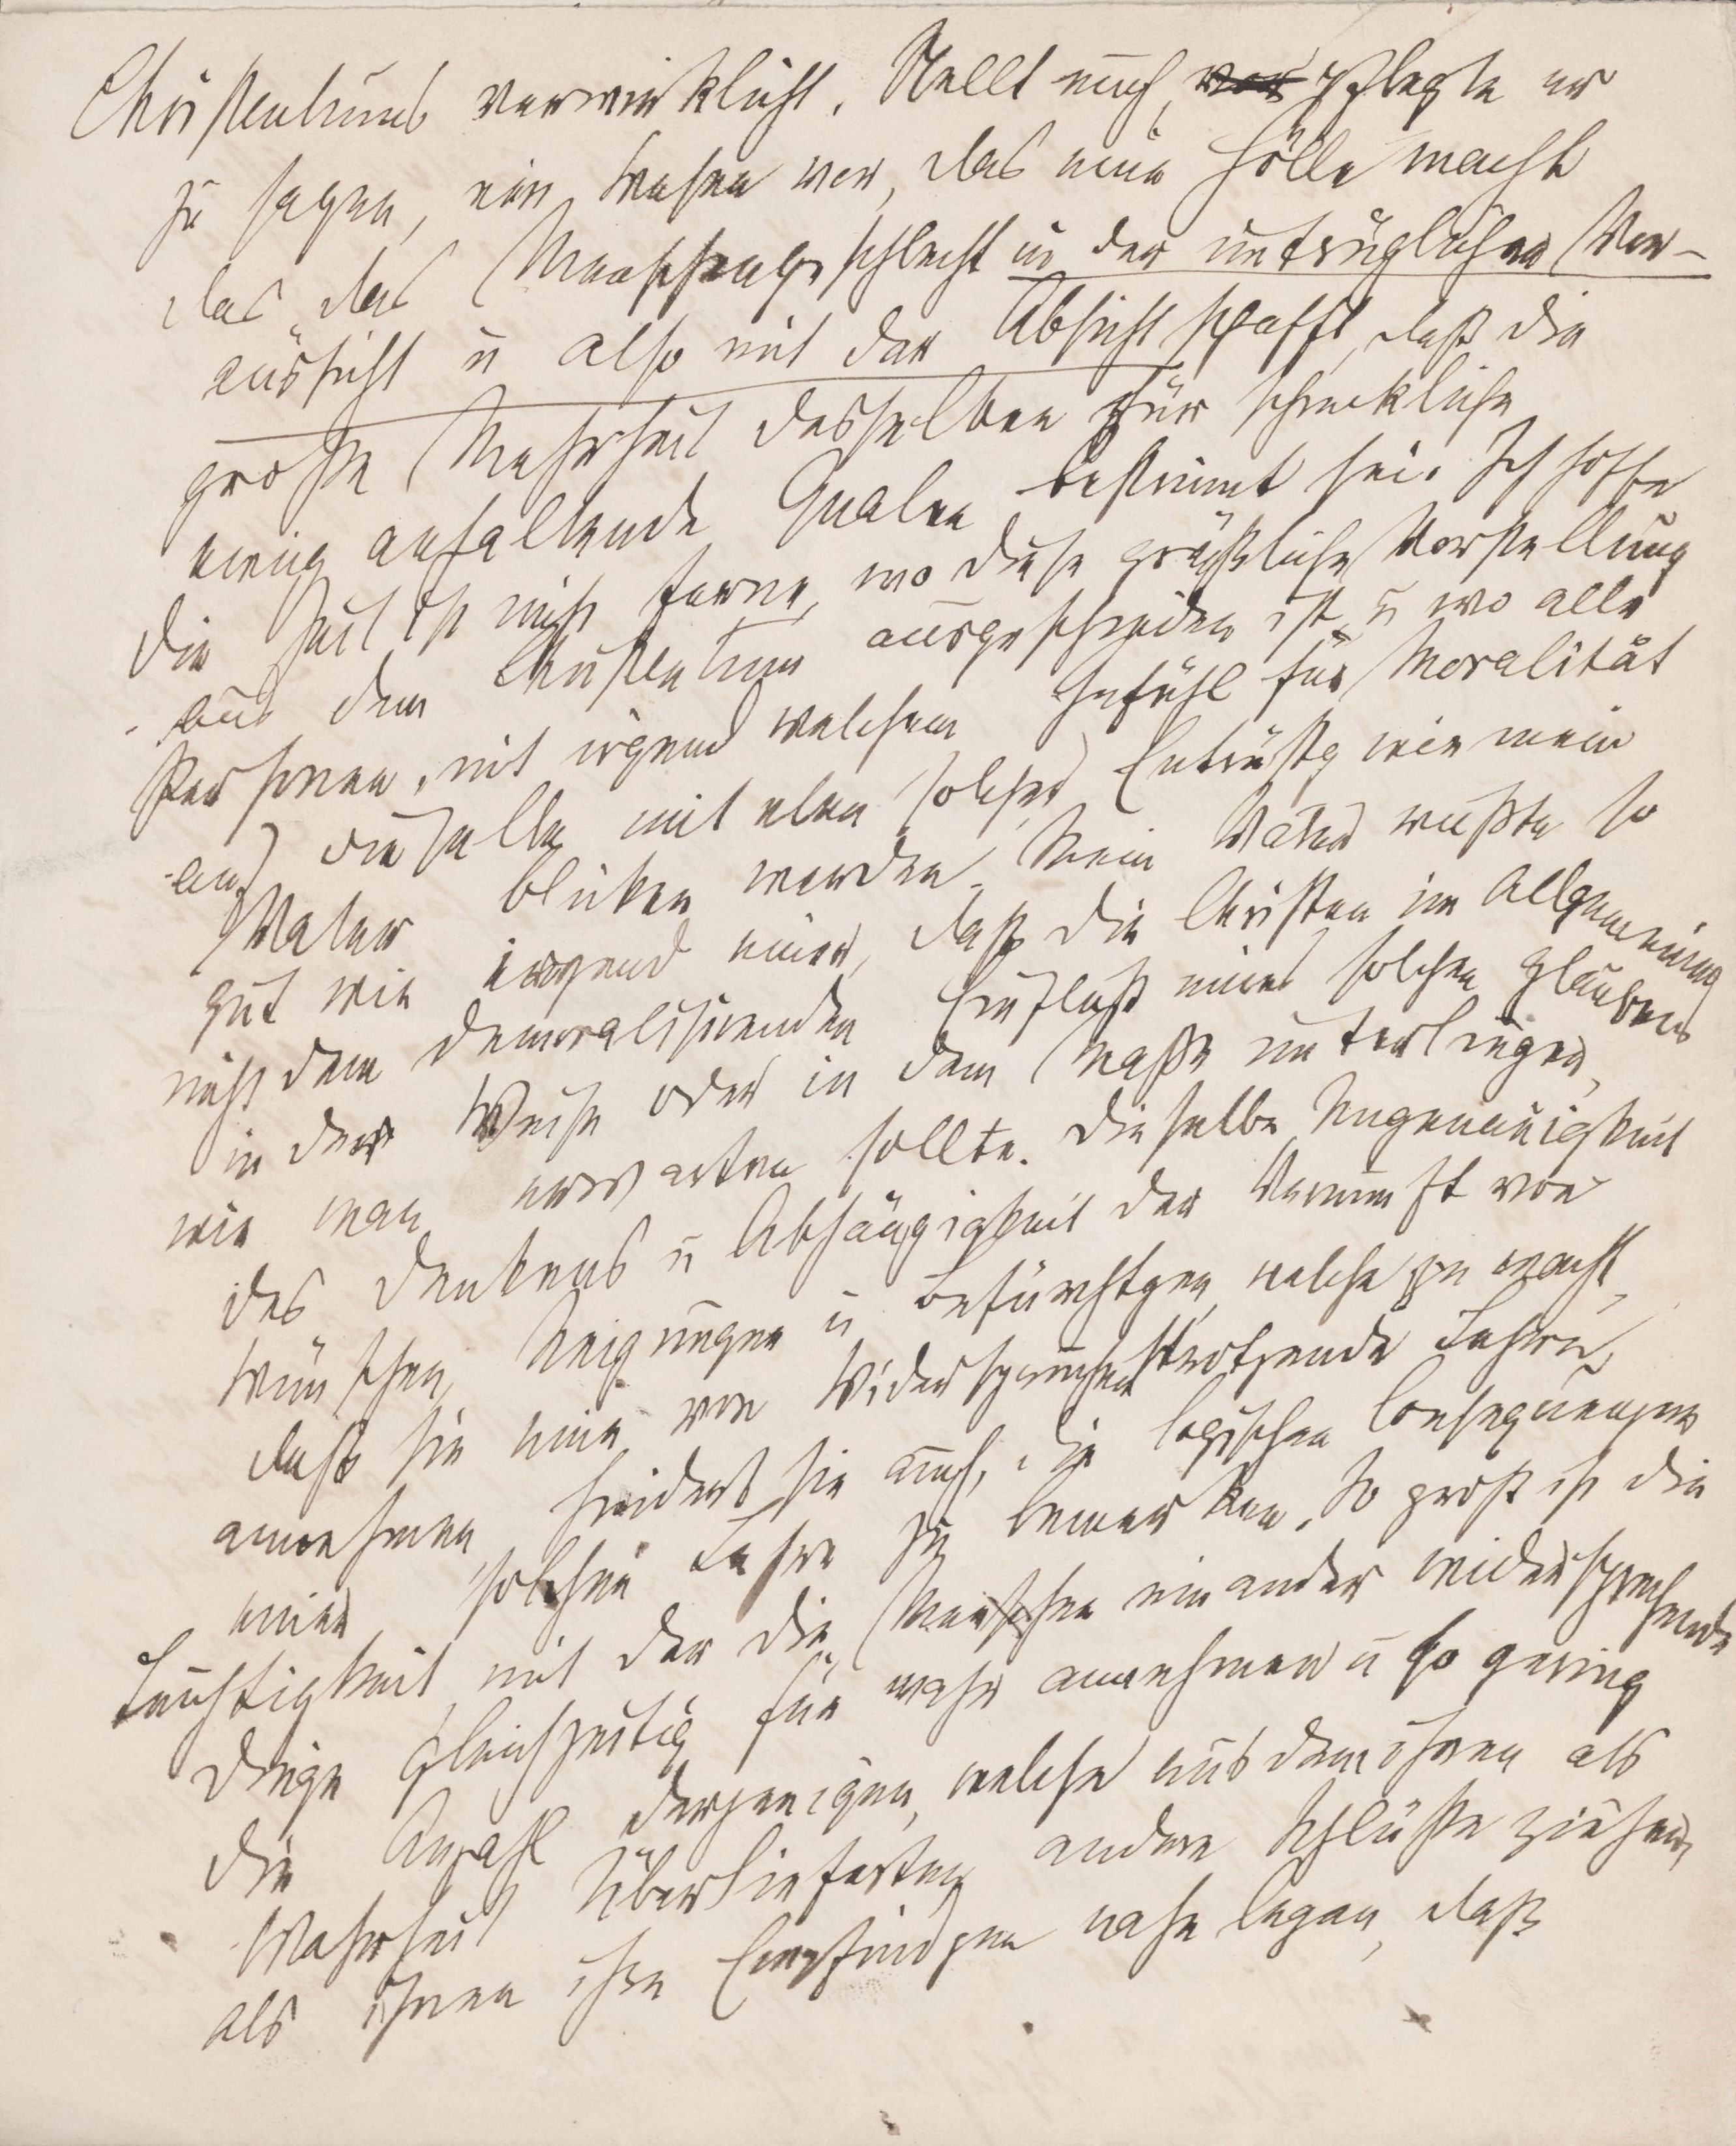 Christentums verwirklicht. Stellt euch, vor pflegte er
zu sagen, ein Wesen vor, das eine Hölle macht
das das Menschengeschlecht in der untrüglichen Vor-
aussicht u also mit der Absicht schafft, daß die
große Mehrheit desselben für schreckliche
ewig anhaltende Qualen bestimmt sei. Ich hoffe
die Zeit ist nicht ferne, wo diese gräßliche Vorstellung
aus dem Christentum ausgeschieden ist, u wo alle
Personen, mit irgend welchem Gefühl für Moralität
auf dieselbe mit eben solcher Entrüstg wie mein
Vater blicken werden. Mein Vater wußte so
gut wie irgend einer, daß die Christen im Allgemeinen
nicht dem demoralisirenden Einfluß eines solchen Glaubens
in der Weise oder in dem Maße unterliegen,
wie man erwarten sollte. Dieselbe Ungenauigkeit
des Denkens u Abhängigkeit der Vernunft von
Wünschen, Neigungen u Befürchtgen, welche zu macht,
daß sie eine von Widersprüchen strotzende Lehre
annehmen hindert sie auch, die logischen Consequenzen
einer solchen Lehre zu bemerken. So groß ist die
Leichtigkeit mit der die Menschen einander widersprechende
Dinge gleichzeitig für wahr annehmen u so gering
die Anzahl derjenigen, welche aus dem ihnen als
Wahrheit Überlieferten andere Schlüße ziehen,
als ihnen ihre Empfindgen nahe legen, daß